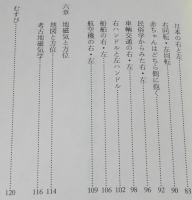 日本の右と左 83
右回転・左回転 90
赤ちゃんはどちら側に抱く 92
民俗学からみた右・左 96
車輌交通の右・左 98
右ハンドルと左ハンドル 102
船舶の右・左 106
航空機の右・左 109
六章 地磁気と方位
地図と方位 114
考古地磁気学 116
むすび 120